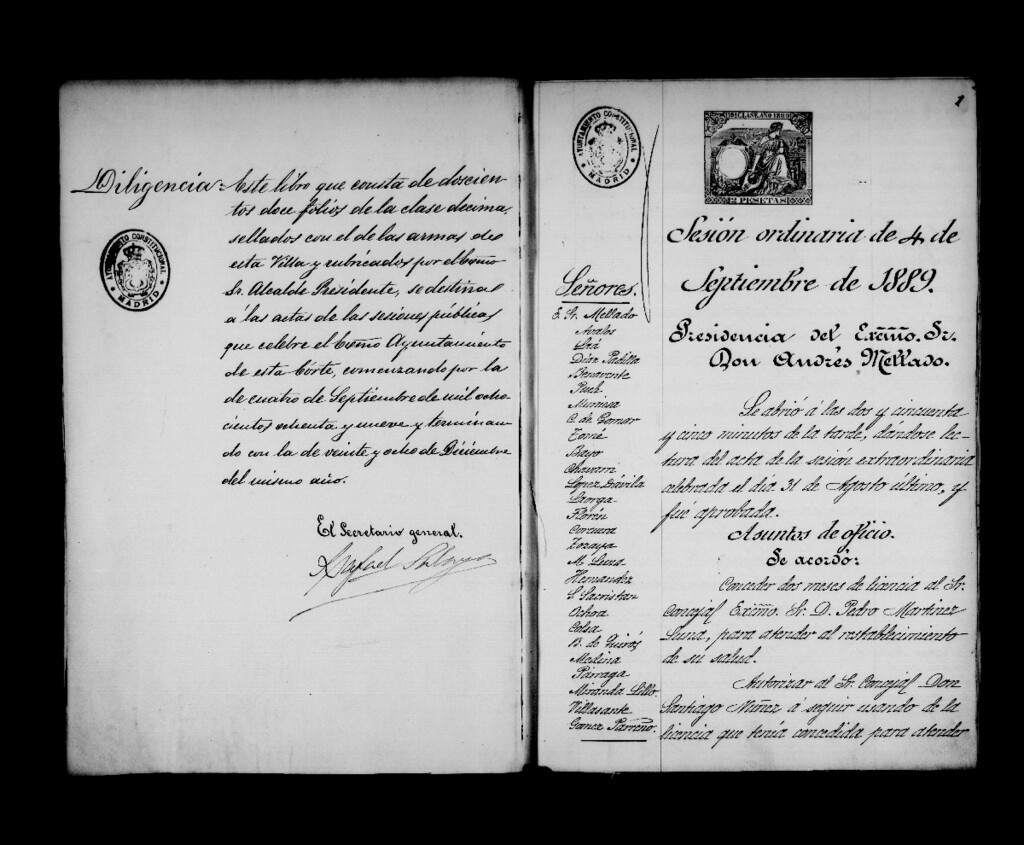 Diligencia=Este libro que consta de doscien
tos doce folios de la clase decima,
sellados con el de las armas de
esta Villa y rubricados por el Excmo
Sr. Alcalde Presidente, se destina
á las actas de las sesiones públicas
que celebre el Excmo Ayuntamiento
de esta Córte, comenzando por la
de cuatro de Septiembre de mil ocho
cientos ochenta y nueve y terminan
do con la de veinte y ocho de Diciembre
del mismo año.
AYUNTAMIENTO CONSTITUCIONAL
MADRID
El Secretario general.
Rafael
1
AYUNTAMIENTO CONSTITUCIONAL
MADRID
10ª CLASE. AÑO 1889
2 PESETAS
Sesión ordinaria de 4 de
Septiembre de 1889.
Presidencia del Exmño. Sr.
Don Andrés Mellado.
Señores.
E. Sr. Mellado
Avalos
Díaz Padilla
Benavente
Puch
Muniesa
C. de Gomar
Tomé
Bayo
Chavarri
Lopez Dávila
Laorga
Florén
Corcuera
Zozaya
M. Luna
Hernandez
S. Sacristan
Ochoa
Colsa
B. de Quirós
Medina
Párraga
Miranda Lillo
Villasante
Gomez Parreño.
Se abrió á las dos y cincuenta
y cinco minutos de la tarde, dándose lec-
tura del acta de la sesión extraordinaria
celebrada el día 31 de Agosto último, y
fué aprobada.
Asuntos de oficio.
Se acordó:
Conceder dos meses de licencia al Sr.
Concejal Exmño. Sr. D. Pedro Martinez
Luna, para atender al restablecimiento
de su salud.
Autorizar al Sr. Concejal Don
Santiago Núñez á seguir usando de la
licencia que tenía concedida para atender